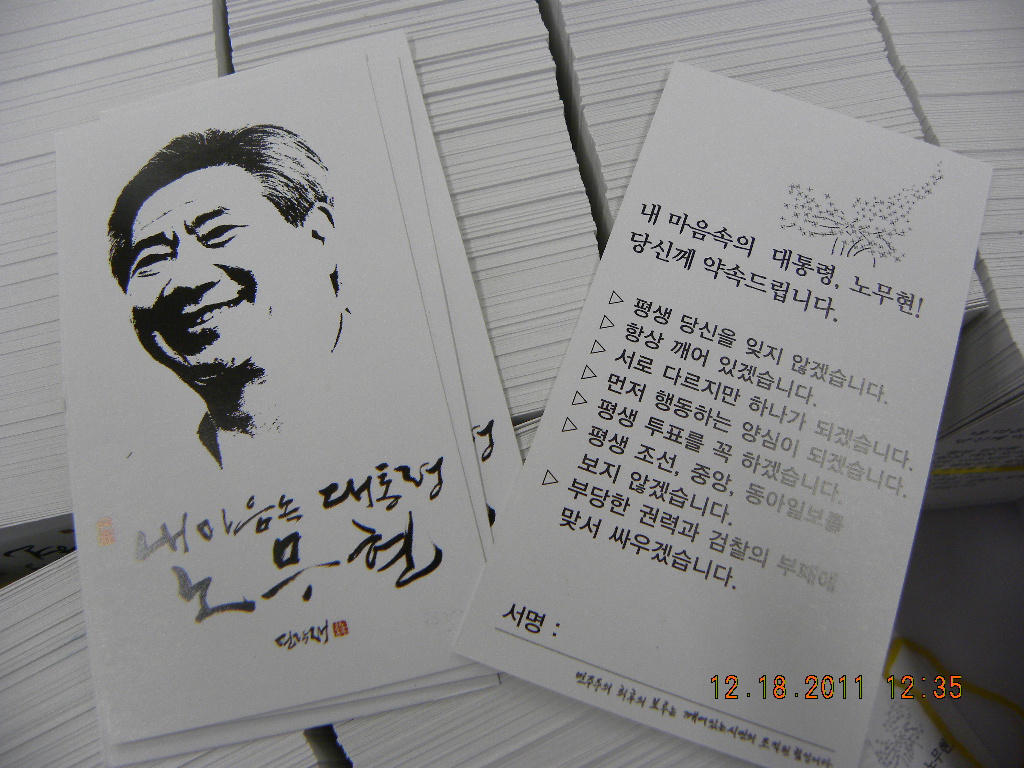 내 마음속 대통령
노 무 현
내 마음속의 대통령, 노무현!
당신께 약속드립니다.
▷ 평생 당신을 잊지 않겠습니다.
▷ 항상 깨어 있겠습니다.
▷ 서로 다르지만 하나가 되겠습니다.
▷ 먼저 행동하는 양심이 되겠습니다.
▷ 평생 투표를 꼭 하겠습니다.
▷ 평생 조선, 중앙, 동아일보를
보지 않겠습니다.
▷ 부당한 권력과 검찰의 부패에
맞서 싸우겠습니다.
서명 :
민주주의 최후의 보루는 깨어있는시민의 조직된 힘입니다.
12.18.2011 12:35
노무현